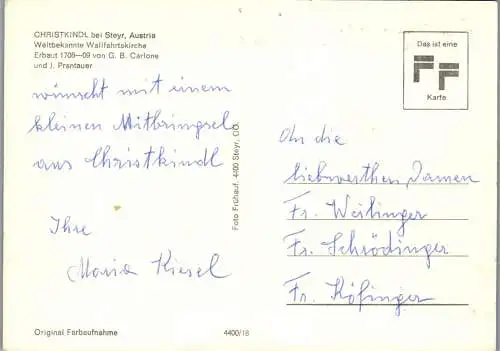 CHRISTKINDL bei Steyr, Austria
Weltbekannte Wallfahrtskirche
Erbaut 1708—09 von G. B. Carlone
und J. Prantauer
Das ist eine
FF
Karte
wünscht mit einem
kleinen Mitbringsel
aus Christkindl
Ihre
Maria Kiesel
Foto Frühauf, 4400 Steyr, OÖ.
An die
liebwerthen Damen
Fr. Weilinger
Fr. Schrödinger
Fr. Köfinger
Original Farbaufnahme
4400/18